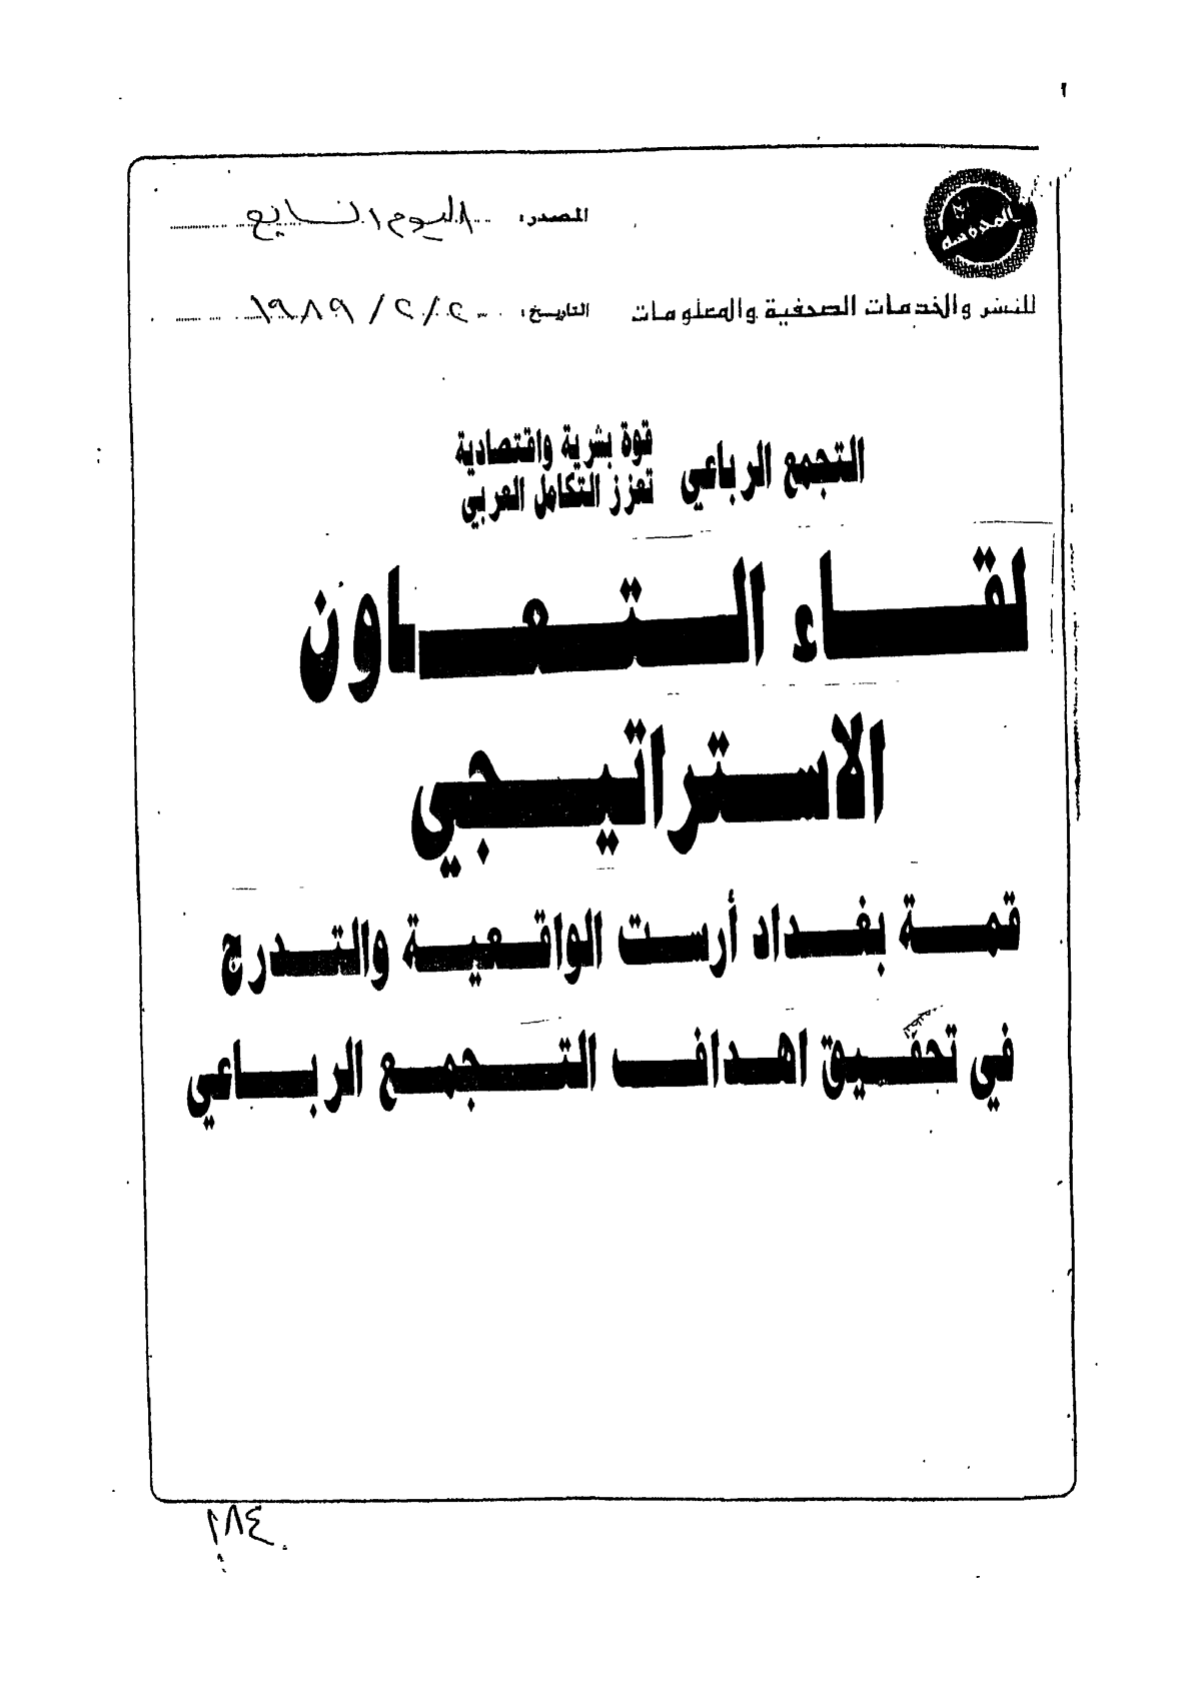 ١
المحروسة
المصدر: اليوم السابع
للنشر والخدمات الصحفية والمعلومات
التاريخ: ٢٠/٢/١٩٨٩
التجمع الرباعي
قوة بشرية واقتصادية
تعزز التكامل العربي
لقاء التعاون
الاستراتيجي
قمة بغداد أرست الواقعية والتدرج
في تحقيق اهداف التجمع الرباعي